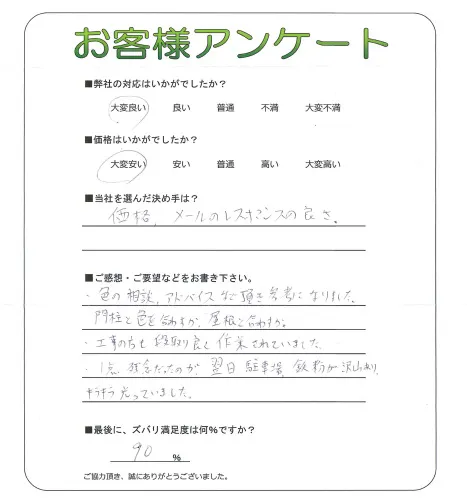 お客様アンケート
■弊社の対応はいかがでしたか？
大変良い 良い 普通 不満 大変不満
■価格はいかがでしたか？
大変安い 安い 普通 高い 大変高い
■当社を選んだ決め手は？
価格、メールのレスポンスの良さ。
■ご感想・ご要望などをお書き下さい。
・色の相談、アドバイスなど頂き参考になりました。
門柱と色を合わすか、屋根と合わすか。
・工事の方も段取り良く作業されていました。
・1点 残念だったのが、翌日 駐車場、鉄粉が沢山あり、
キラキラ光っていました。
■最後に、ズバリ満足度は何％ですか？
90 ％
ご協力頂き、誠にありがとうございました。